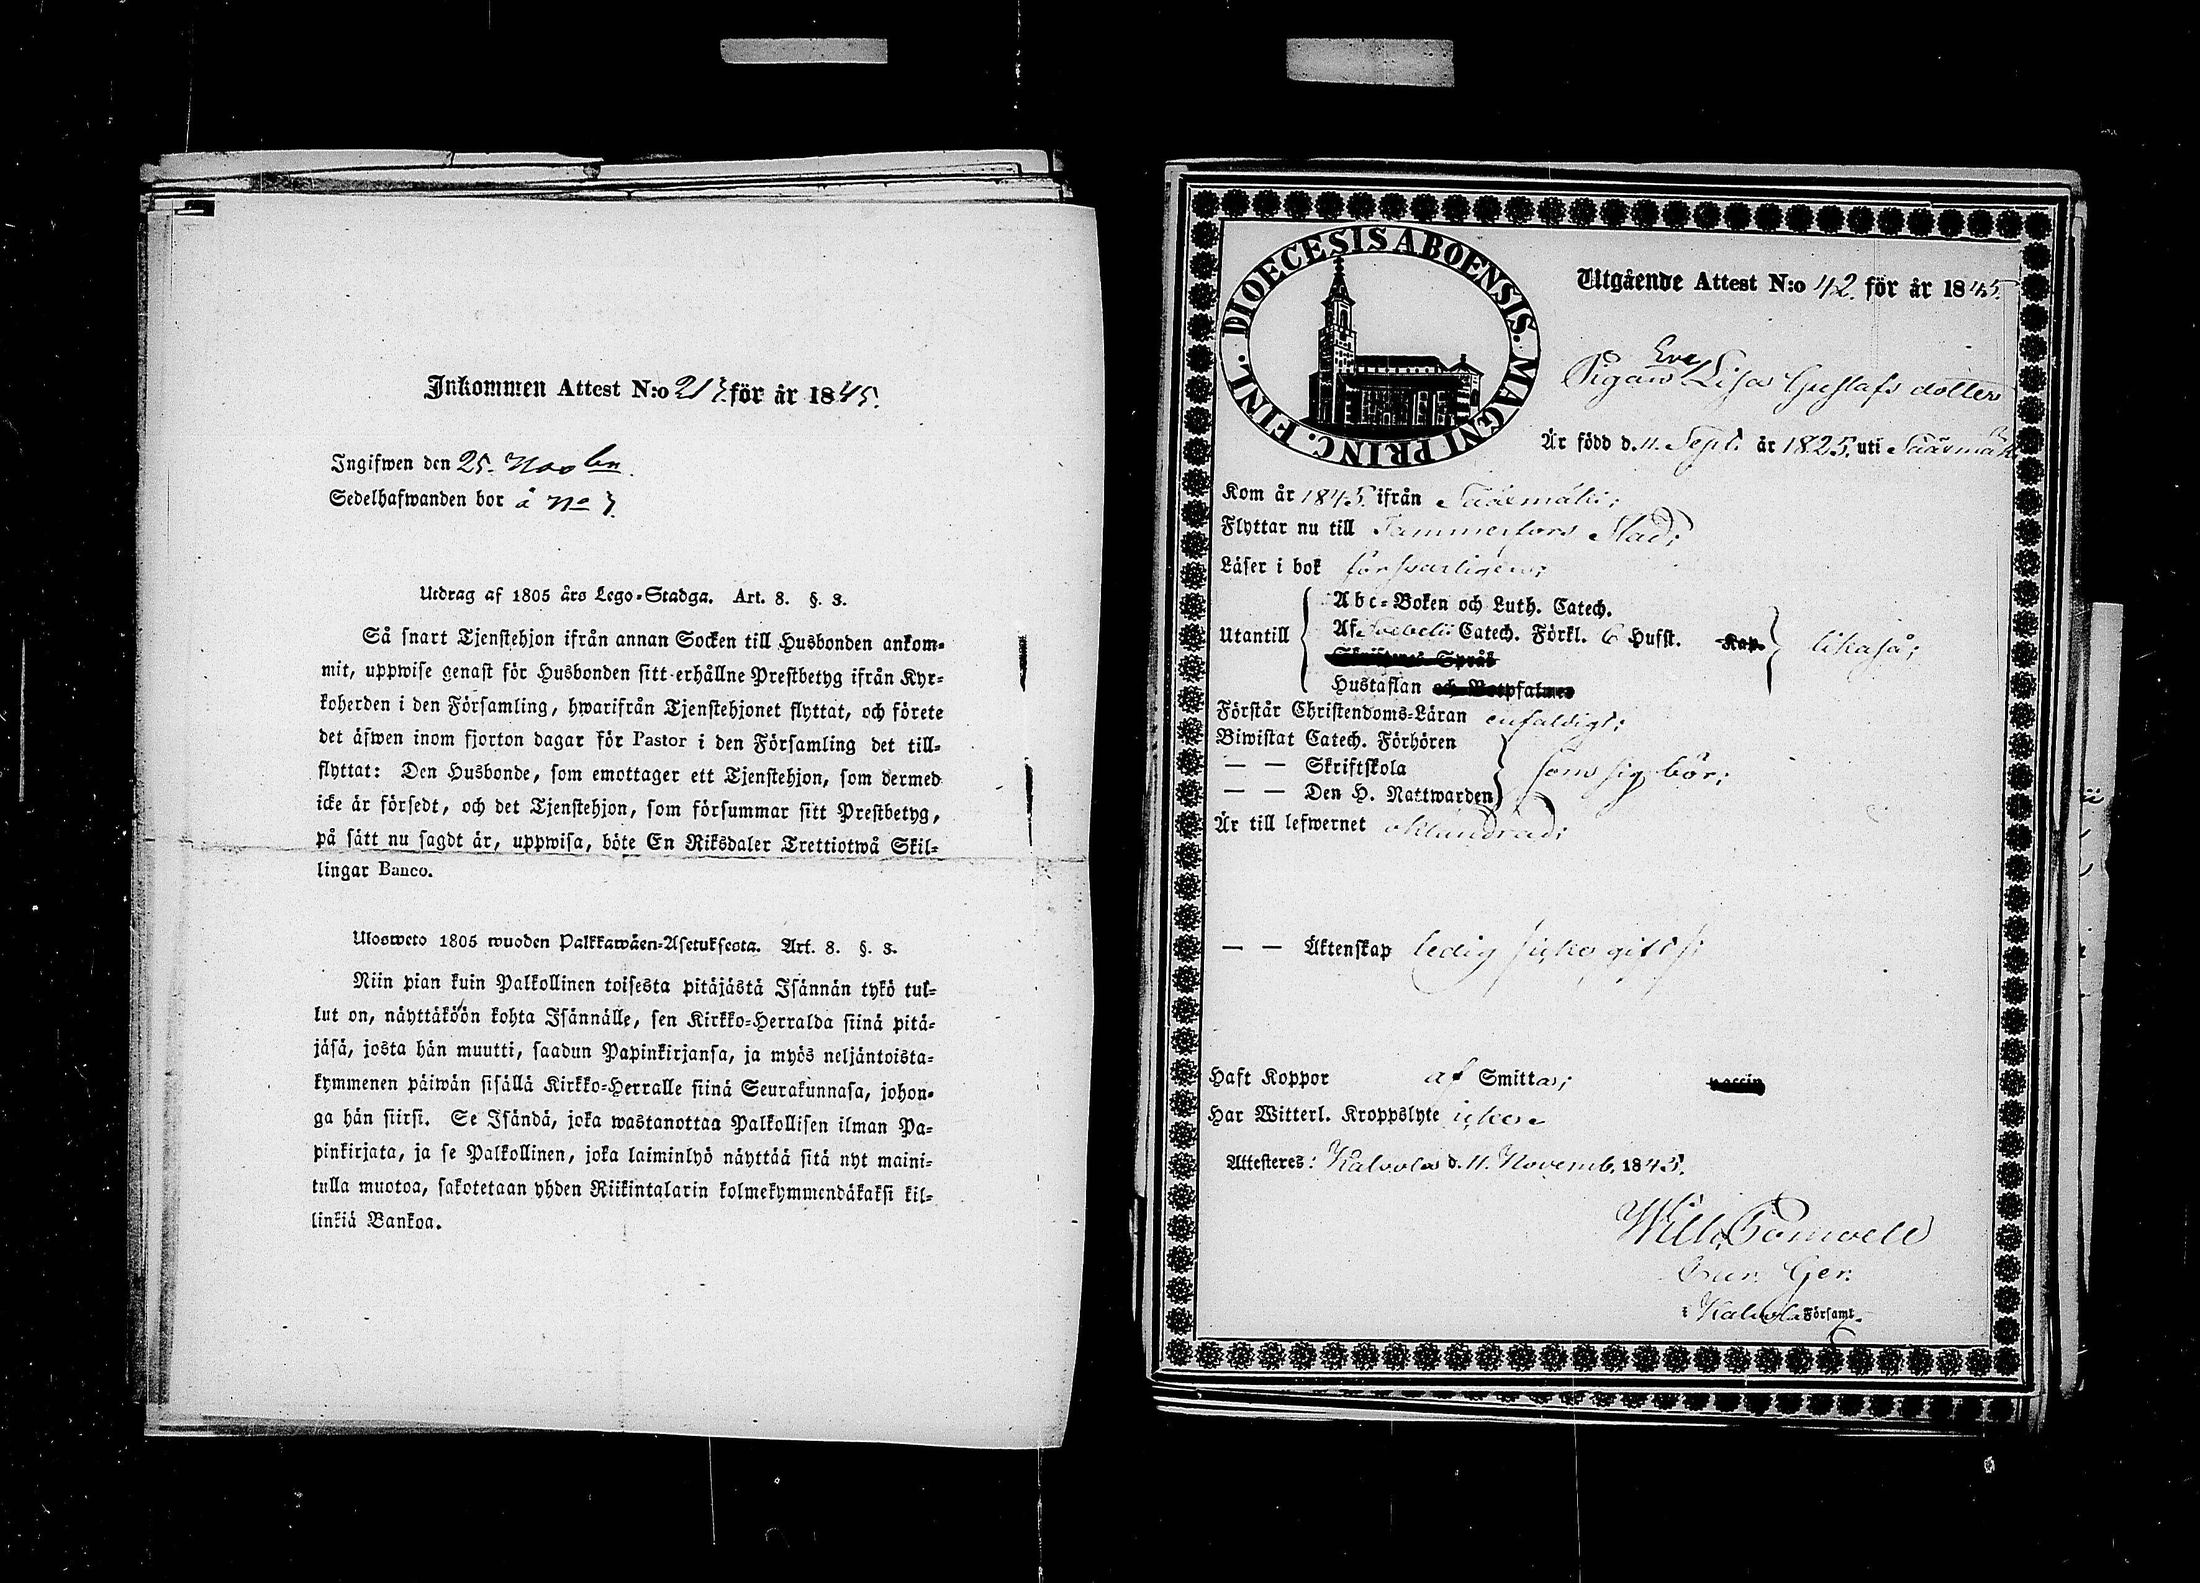 Inkommen Attest N:o 213 för år 1845.
Ingifwen den 25. Novbn.
Sedelhafwanden bor å No 3.
Utdrag af 1805 års Lego-Stadga. Art. 8. §. 3.
Så snart Tjenstehjon ifrån annan Socken till Husbonden ankom-
mit, uppwise genast för Husbonden sitt erhållne Prestbetyg ifrån Kyr-
koherden i den Församling, hwarifrån Tjenstehjonet flyttat, och förete
det äfwen inom fjorton dagar för Pastor i den Församling det till-
flyttat: Den Husbonde, som emottager ett Tjenstehjon, som dermed
icke är försedt, och det Tjenstehjon, som försummar sitt Prestbetyg,
på sätt nu sagdt är, uppwisa, böte En Riksdaler Trettiotwå Skil-
lingar Banco.
Ulosweto 1805 wuoden Palkkawäen-Asetuksesta. Art. 8. §. 3.
Niin pian kuin Palkollinen toisesta pitäjästä Isännän tykö tul-
lut on, näyttäköön kohta Isännälle, sen Kirkko-Herralda siinä pitä-
jäsä, josta hän muutti, saadun Papinkirjansa, ja myös neljäntoista-
kymmenen päiwän sisällä Kirkko-Herralle siinä Seurakunnasa, johon-
ga hän siirsi. Se Isändä, joka wastanottaa Palkollisen ilman Pa-
pinkirjata, ja se Palkollinen, joka laiminlyö näyttää sitä nyt maini-
tulla muotoa, sakotetaan yhden Riikintalarin kolmekymmendäkaksi kil-
linkiä Bankoa.
DIOECESIS ABOENSIS. MAGNI PRINC. FINL.
Utgående Attest N:o 42. för år 1845.
Eva
Pigan Lisa Gustafs dotter
Är född d. 11. Sept. år 1825. uti Sääxmäki
Kom år 1845. ifrån Sääxmäki;
Flyttar nu till Tammerfors Stad;
Läser i bok försvarligen;
Utantill
Abc-Boken och Luth. Catech.
Af Svebelii Catech. Förkl. 6 Hufst. Kap. likaså;
Skriftenes Språk
Hustaflan och Botpsalmer
Förstår Christendoms-Läran enfaldigt;
Biwistat Catech. Förhören
— — Skriftskola som sig bör;
— — Den H. Nattwarden
Är till lefwernet oklandrad;
— — Äktenskap ledig
Haft Koppor af Smitta; vaccin
Har Witterl. Kroppslyte icke
Attesteres: Kalvola d. 11. Novemb. 1845.
Wilh.
i Kalvola Församl.